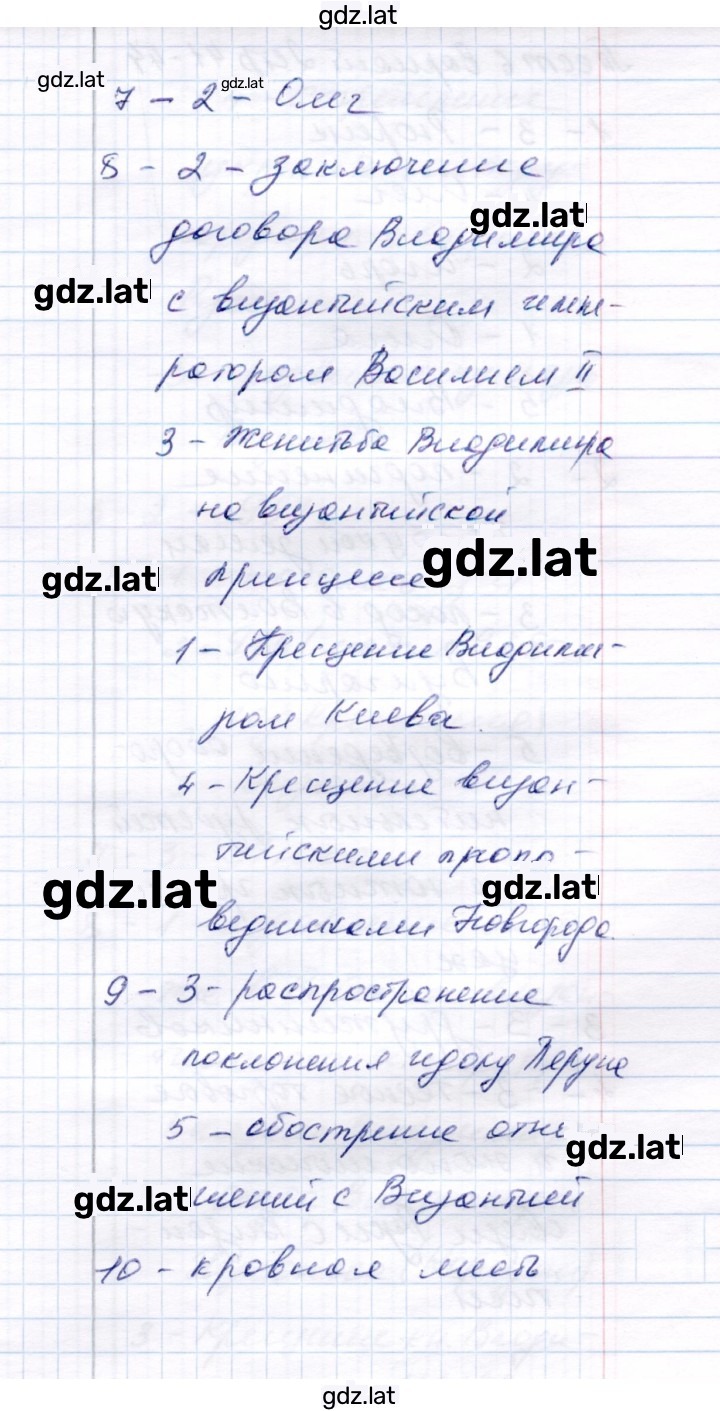 gdz.lat
gdz.lat
gdz.lat
7 - 2 - Олег
8 - 2 - заключение
gdz.lat
договора Владимира
gdz.lat
с византийским импе-
ратором Василием II
3 - Женитьба Владимира
на византийской
gdz.lat
gdz.lat
принцессе
1 - Крещение Владими-
ром Киева.
4 - Крещение визан-
тийскими пропо-
gdz.lat
gdz.lat
ведниками Новгорода.
9 - 3 - распространение
поклонения идолу Перуна
5 - обострение отно
gdz.lat
gdz.lat
шений с Византией
10 - кровная месть
gdz.lat